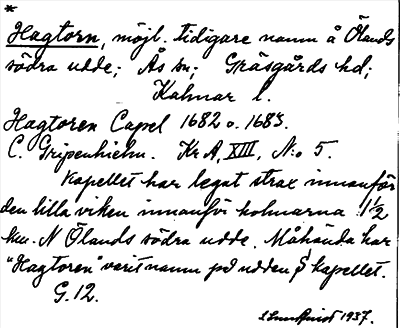 *
Hagtorn, möjl. tidigare namn å Ölands
södra udde; Ås sn; Gräsgårds hd;
Kalmar l.
Hagtoren Capel 1682 o. 1683.
C. Gripenhielm. Kr A, XIII, N:o 5.
Kapellet har legat strax innanför
den lilla viken innanför holmarna 1 1/2
km. N Ölands södra udde. Måhända har
"Hagtoren" varit namn på udden o kapellet.
G. 12.
1937.